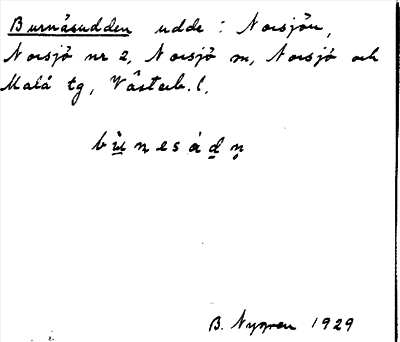 Burnäsudden udde: Norsjön,
Norsjö nr 2, Norsjö sn, Norsjö och
Malå tg, Västerb. l.
bu̠nesádn̥
B. Nygren 1929